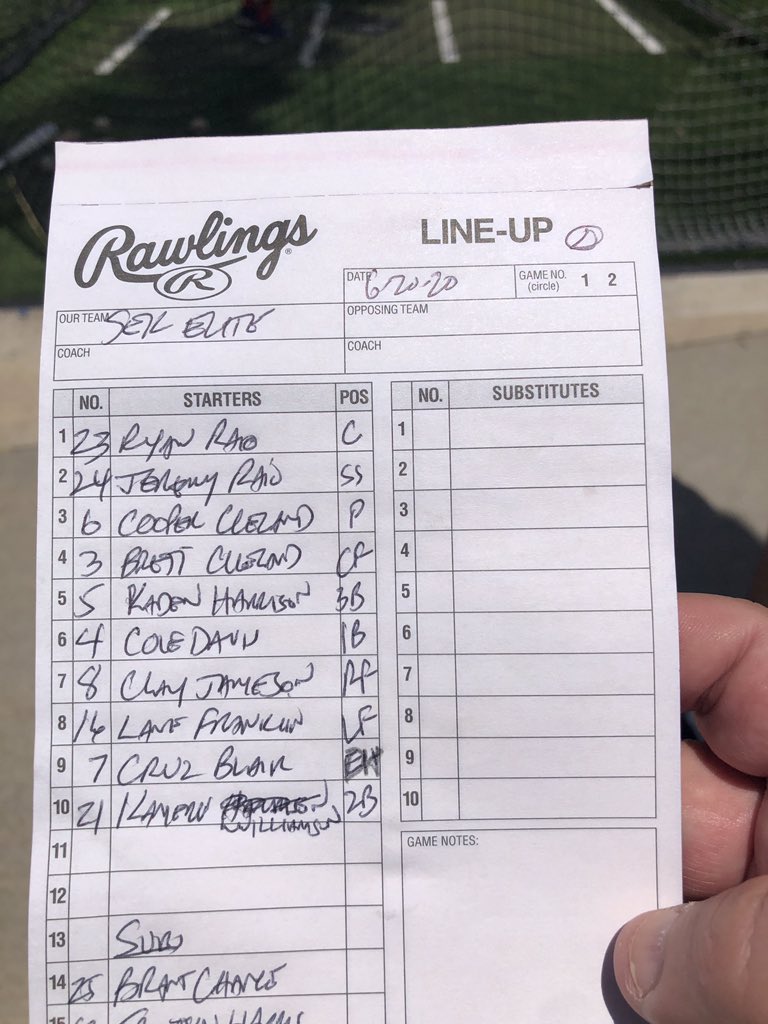 Rawlings ®
R
LINE-UP
DATE 6-20-20
GAME NO. (circle) 1 2
OUR TEAM SER ELITE
OPPOSING TEAM
COACH
COACH
NO. STARTERS POS
1 23 RYAN RAO C
2 24 JEREMY RAIO SS
3 6 COOPER CLELAND P
4 3 BRETT CLELAND CF
5 5 KADEN HARRISON 3B
6 4 COLE DAVN 1B
7 8 CLAY JAMESON RF
8 16 LANE FRANKLIN LF
9 7 CRUZ BLAIR EH
10 21 KAMERN WILLIAMSON 2B
11
12
13 SUBS
14 25 BRANT CHANCE
15 HARRIS
NO. SUBSTITUTES
1
2
3
4
5
6
7
8
9
10
GAME NOTES: